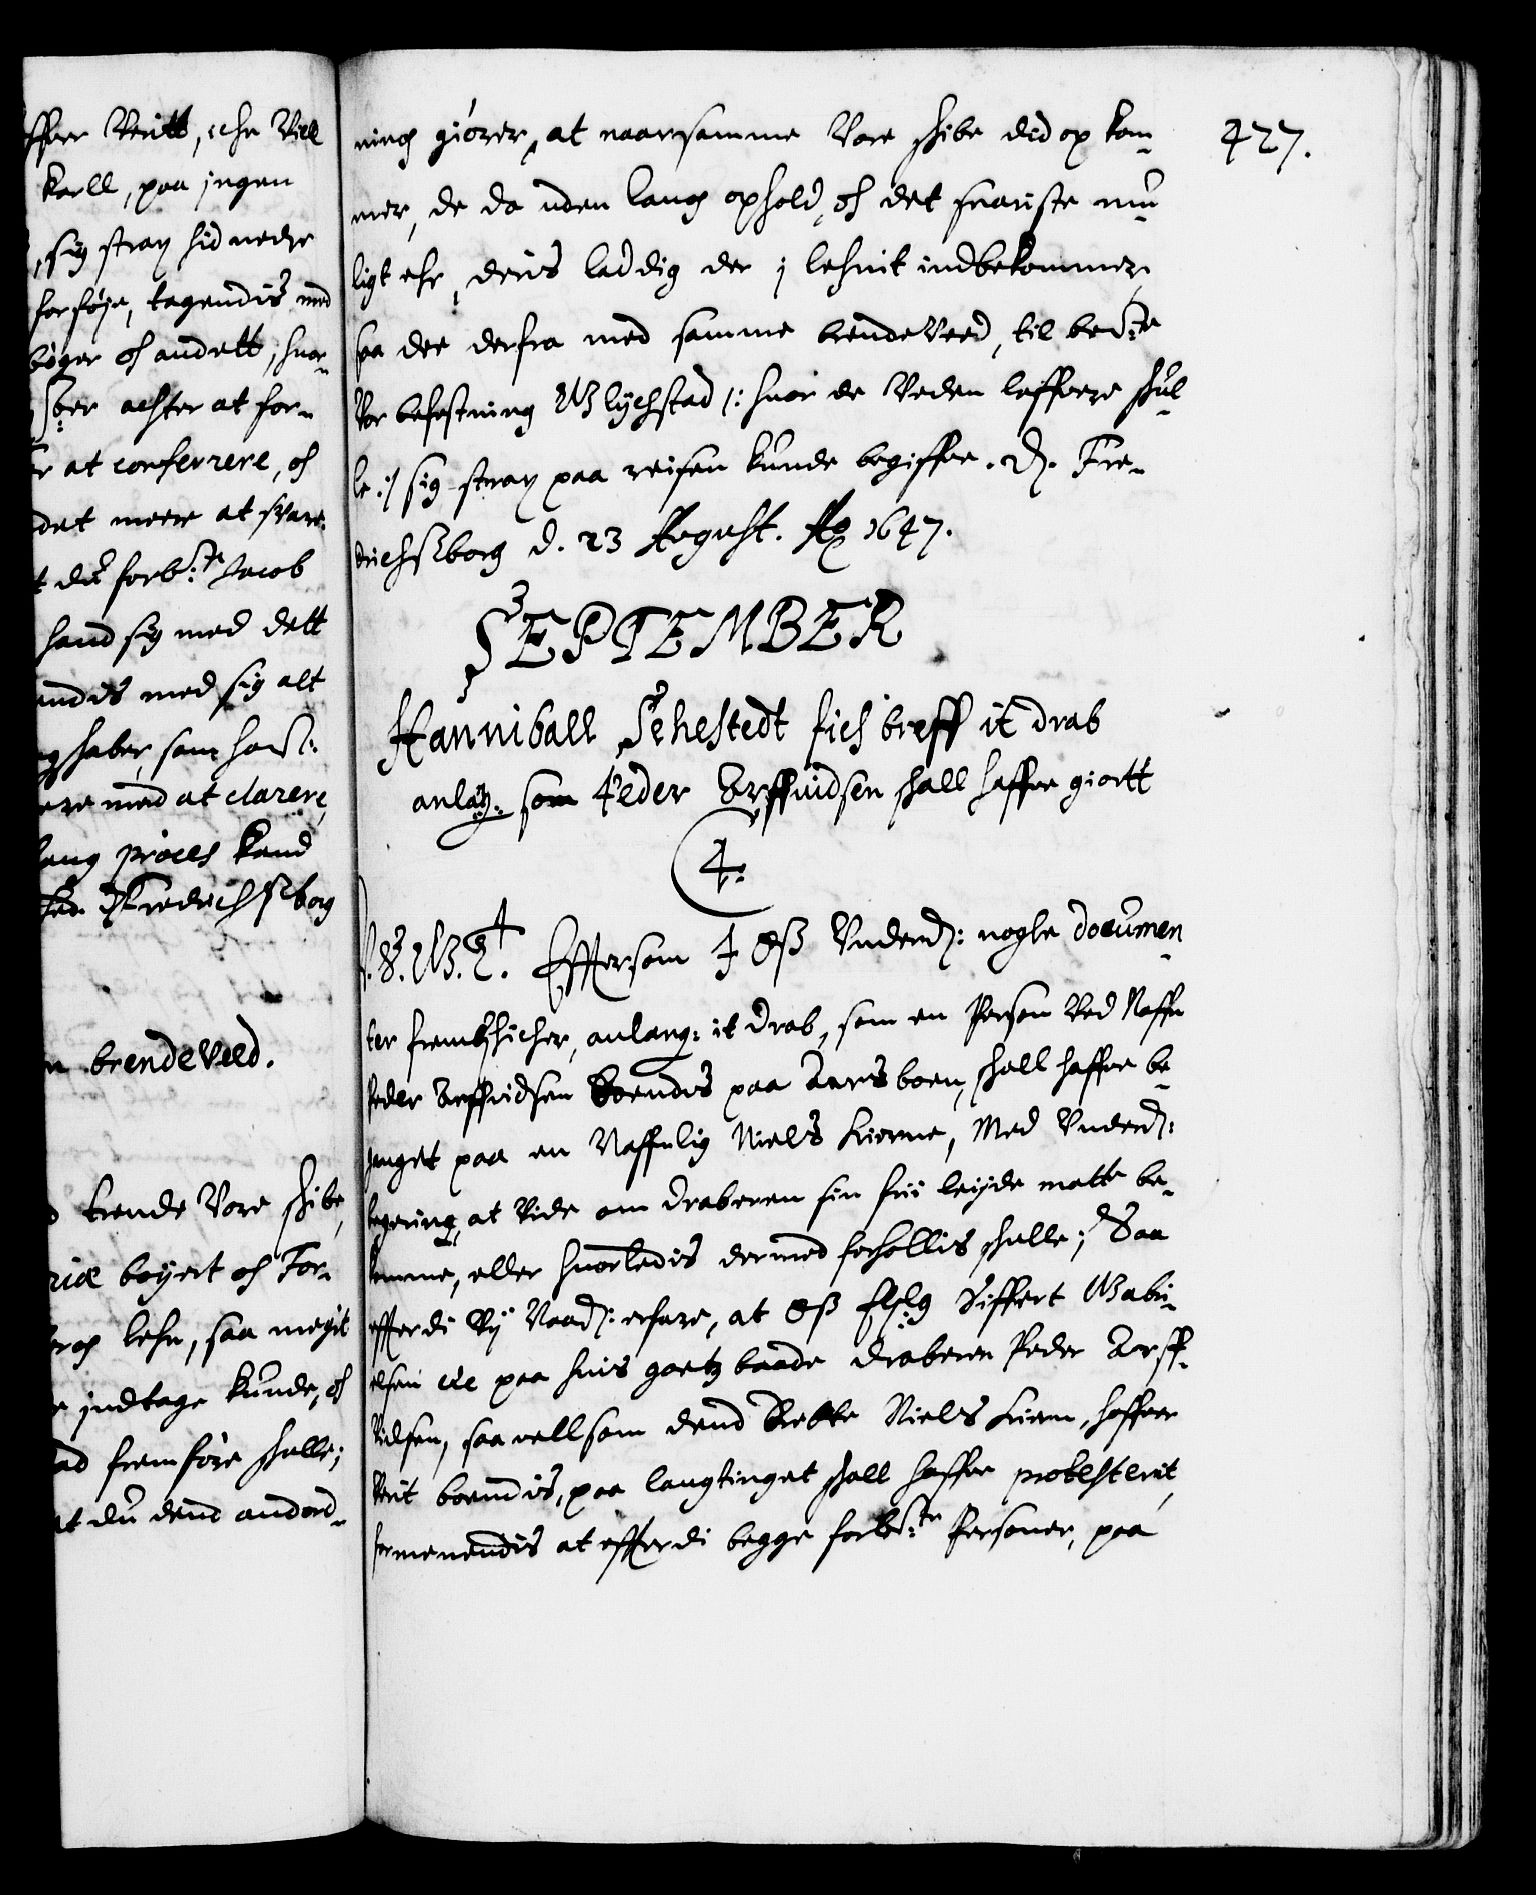 ffuer Veritt, iche Vill
karll, paa jngen
, sig strax hid nedre
forføje, tagendis med
bøger och andett, huor-
achter at for-
at conferrere, oc
det meere at svare
t du forb:te Jacob
hand sig med dett
endis med sig alt
ere med at clarere,
lang proces kand
Fredrichsborg
brendeveed.
trende Vore skibe,
ricæ boyert och For-
lehn, saa megit
jndtage kunde, och
ad fremføre skulle;
at du dend anord-
ning giörer, at naar samme Vore skibe did op kom-
mer, de da uden lang ophold, och det snariste mu-
ligt ehr, deris ladding der j lehnit indbekommer,
saa dee derfra med samme brendeveed, til bem:te
Vor befestning Glychstad /: huor de Veden leffuere skul-
le :/ sig strax paa reisen kunde begiffue. D. Fre-
derichsborg d. 23 August. Ao 1647.
427.
SEPTEMBER
Hanniball Sehestedt fich breff it drab
anlag: som Peder Arffuidsen skall haffue giortt
4.
C. 4. W. G. T. Efftersom I Oss Underd: nogle documen-
ter fremskicher, anlang: it drab, som en Person Ved Naffn
Peder Arffuidsen boendis paa Aarsboen, skall haffue be-
ganget paa en Naffnlig Niels Kierne, Med Underd:
begering, at Vide om draberen sin frii leijde matte be-
komme, eller huorledis dermed forhollis skulle; Saa
efterdi Vij Naad: erfare, at Oss Elsl: Siffert Gabri-
elsen etc paa huis goetz baade draberen Peder Arff-
vidsen, saa vell som dend drebte Niels Kiern, haffuer
Verit boendis, paa langtinget skall haffue protesterit,
formenendis at efterdi begge forb:te Personer, paa